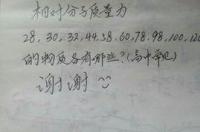 相对分子质量为
28、30、32、44、58、60、78、98、100、120
的物质各有哪些?(高中常见)
谢谢